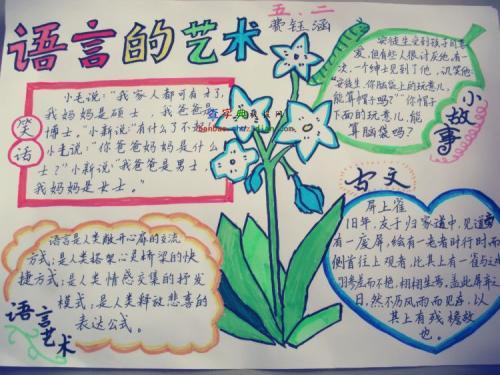 语言的艺术
五.二
费钰涵
笑话
小毛说：“我家人都可有才了，
我妈妈是硕士，我爸爸是
博士。”小新说：“有什么了不起
小毛说：“你爸爸妈妈是什么
士？”小新说：“我爸爸是男士，
我妈妈是女士。”
安徒生受到孩子的喜
爱，但有些人很讨厌他，有
一次，一个绅士见到了他，讥笑他：
“安徒生，你脑袋上的玩意儿，
能算帽子吗？”“你帽子
下面的玩意儿，能
算脑袋吗？
小故事
语言是人类敞开心扉的交流
方式；是人类搭架心是桥梁的快
捷方式；是人类情感交集的抒发
模式；是人类释放悲喜的
表达公式。
语言艺术
古文
屏上雀
旧年，友于归家道中，见道旁
有一废屏，绘有一老者时行时而
侧首往上观者，比其上有一雀与之
羽参差而不艳，相相生号，盖此屏弃之
日，然不历风雨而见存，以
其上有残檐故
也。